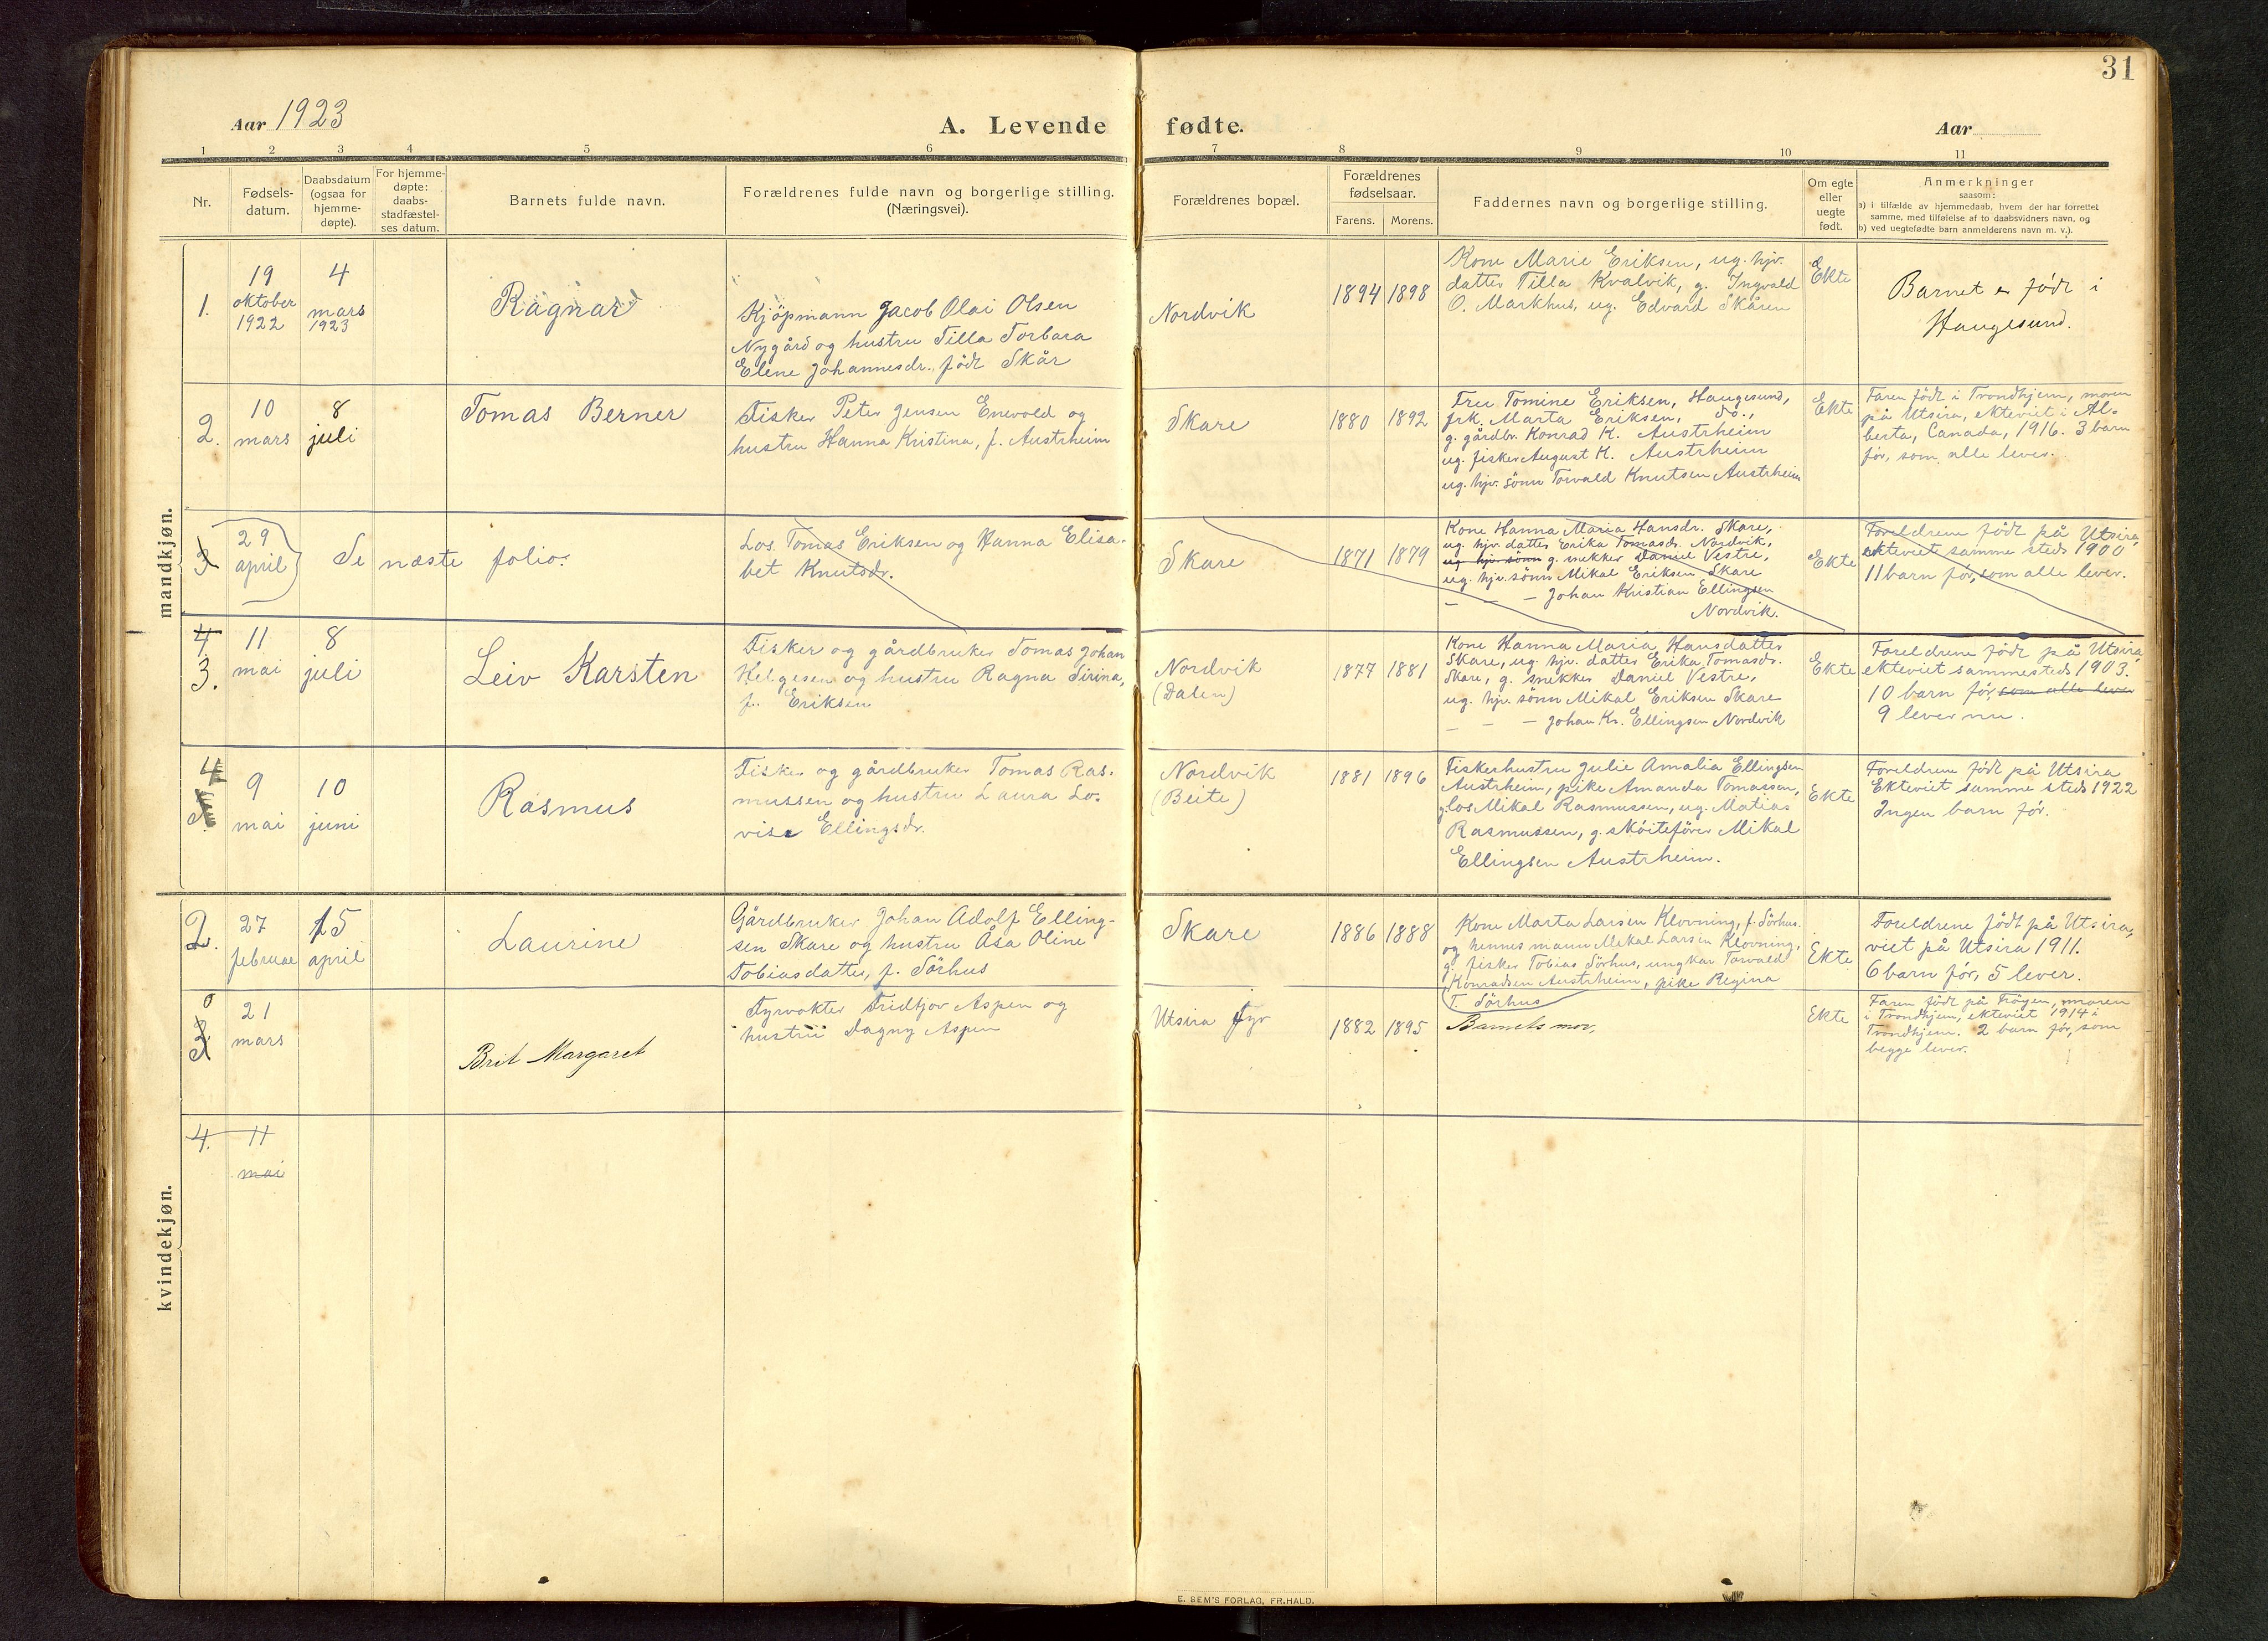 31
Aar 1923
A. Levende fødte.
Aar
1 2 3 4 5 6 7 8 9 10 11
Nr.
Fødsels-
datum.
Daabsdatum
(ogsaa for
hjemme-
døpte).
For hjemme-
døpte:
daabs-
stadfæstel-
ses datum.
Barnets fulde navn.
Forældrenes fulde navn og borgerlige stilling.
(Næringsvei).
Forældrenes bopæl.
Forældrenes
fødselsaar.
Farens. Morens.
Faddernes navn og borgerlige stilling.
Om egte
eller
uegte
født.
Anmerkninger
saasom:
a) i tilfælde av hjemmedaab, hvem der har forrettet
samme, med tilføielse af to daabsvidners navn, og
b) ved uegtefødte barn anmelderens navn m. v.).
mandkjøn.
1.
19
oktober
1922
4
mars
1923
Ragnar
Kjöpmann Jacob Olai Olsen
Nygård og hustru Tilla Torbara
Elene Johannesdr., födt Skår
Nordvik
1894 1898
Kone Marie Eriksen, ug. hjv.
datter Tilla Kvalvik, g. Ingvald
O. Markhus, ug. Edvard Skåren
Ekte
Barnet er födt i
Haugesund.
2.
10
mars
8
juli
Tomas Berner
Fisker Peter Jensen Enevold og
hustru Hanna Kristina, f. Austrheim
Skare
1880 1892
Fru Tomine Eriksen, Haugesund,
frk. Marta Eriksen, do.,
g. gårdbr. Konrad K. Austrheim
ug. fisker August K. Austrheim
ug. hjv. sönn Torvald Knutsen Austrheim
Ekte
Faren födt i Trondhjem, moren
på Utsira, ekteviet i Al-
berta, Canada, 1916. 3 barn
för, som alle lever.
3
29
april
Se næste folio.
Los Tomas Eriksen og Hanna Elisa-
bet Knutsdr.
Skare
1871 1879
Kone Hanna Maria Hansdr. Skare,
ug. hjv. datter Erika Tomasdr. Nordvik,
ug. hjv. sönn g. snekker Daniel Vestre,
ug. hjv. sönn Mikal Eriksen Skare
— — — Johan Kristian Ellingsen
Nordvik.
Ekte
Foreldrene födt på Utsira,
ekteviet samme steds 1900
11 barn för, som alle lever.
4
3.
11
mai
8
juli
Leiv Karsten
Fisker og gårdbruker Tomas Johan
Helgesen og hustru Ragna Sirina,
f. Eriksen
Nordvik
(Dalen)
1877 1881
Kone Hanna Maria Hansdatter
Skare, ug. hjv. datter Erika Tomasdr.
Skare, g. snekker Daniel Vestre,
ug. hjv. sönn Mikal Eriksen Skare
— — Johan Kr. Ellingsen Nordvik
Ekte
Foreldrene födt på Utsira,
ekteviet sammesteds 1903.
10 barn för, som alle lever
9 lever nu.
4
9
mai
10
juni
Rasmus
Fisker og gårdbruker Tomas Ras-
mussen og hustru Laura Lo-
vise Ellingsdr.
Nordvik
(Beite)
1881 1896
Fiskerhustru Julie Amalia Ellingsen
Austrheim, pike Amanda Tomassen,
g. los Mikal Rasmussen, ug. Matias
Rasmussen, g. sköiteförer Mikal
Ellingsen Austrheim.
Ekte
Foreldrene födt på Utsira
Ekteviet samme steds 1922
Ingen barn för.
kvindekjøn.
2.
27
februar
15
april
Laurine
Gårdbruker Johan Adolf Elling-
sen Skare og hustru Åsa Oline
Tobiasdatter, f. Sörhus
Skare
1886 1888
Kone Marta Larsen Klovning, f. Sörhus.
og hennes mann Mikal Larsen Klovning,
g. fisker Tobias Sörhus, ungkar Torvald
Konradsen Austrheim, pike Regina
T. Sörhus
Ekte
Foreldrene födt på Utsira,
viet på Utsira 1911.
6 barn för, 5 lever.
21
mars
Brit Margaret
Fyrvokter Fridtjov Aspen og
hustru Dagny Aspen
Utsira fyr
1882 1895
Barnets mor,
Ekte
Faren födt på Fröyen, moren
i Trondhjem, ekteviet 1914 i
Trondhjem. 2 barn för, som
begge lever.
4.
11
mai
E. SEM'S FORLAG, FR.HALD.